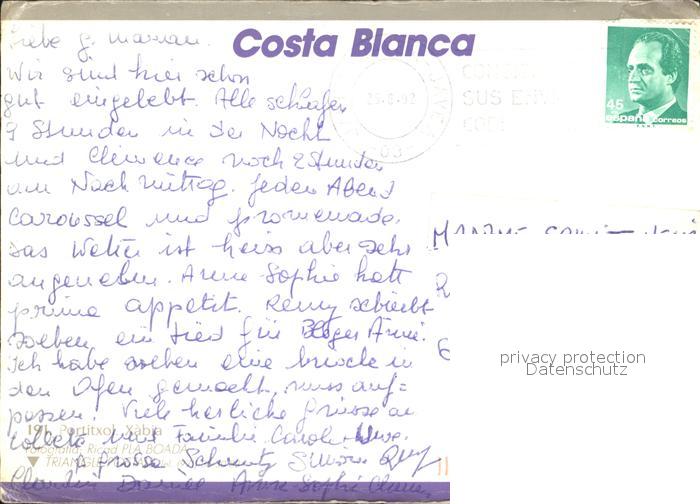 Liebe g. Maman.
Costa Blanca
Wir sind hier schon
gut eingelebt. Alle schlafen
9 Stunden in der Nacht
und Clémence noch 2 Stunden
am Nachmittag. Jeden Abend
Caroussel und promenade.
Das Wetter ist heiss aber sehr
angenehm. Anne-Sophie hat
prima appetit. Remy schreibt
soeben ein Lied für Anne.
Ich habe soeben eine in
den Ofen gemacht, muss auf=
passen. Viele herzliche grüsse an
Colette und Familie. Carole + Uwe.
grosse Schmutz Simone
Claudia Anne-Sophie
8-92
SUS
45
españa correos
MADAME
191 Portitxol, Xàbia
Fotografía: Ricad PLA BOADA
TRIANGLE
privacy protection
Datenschutz